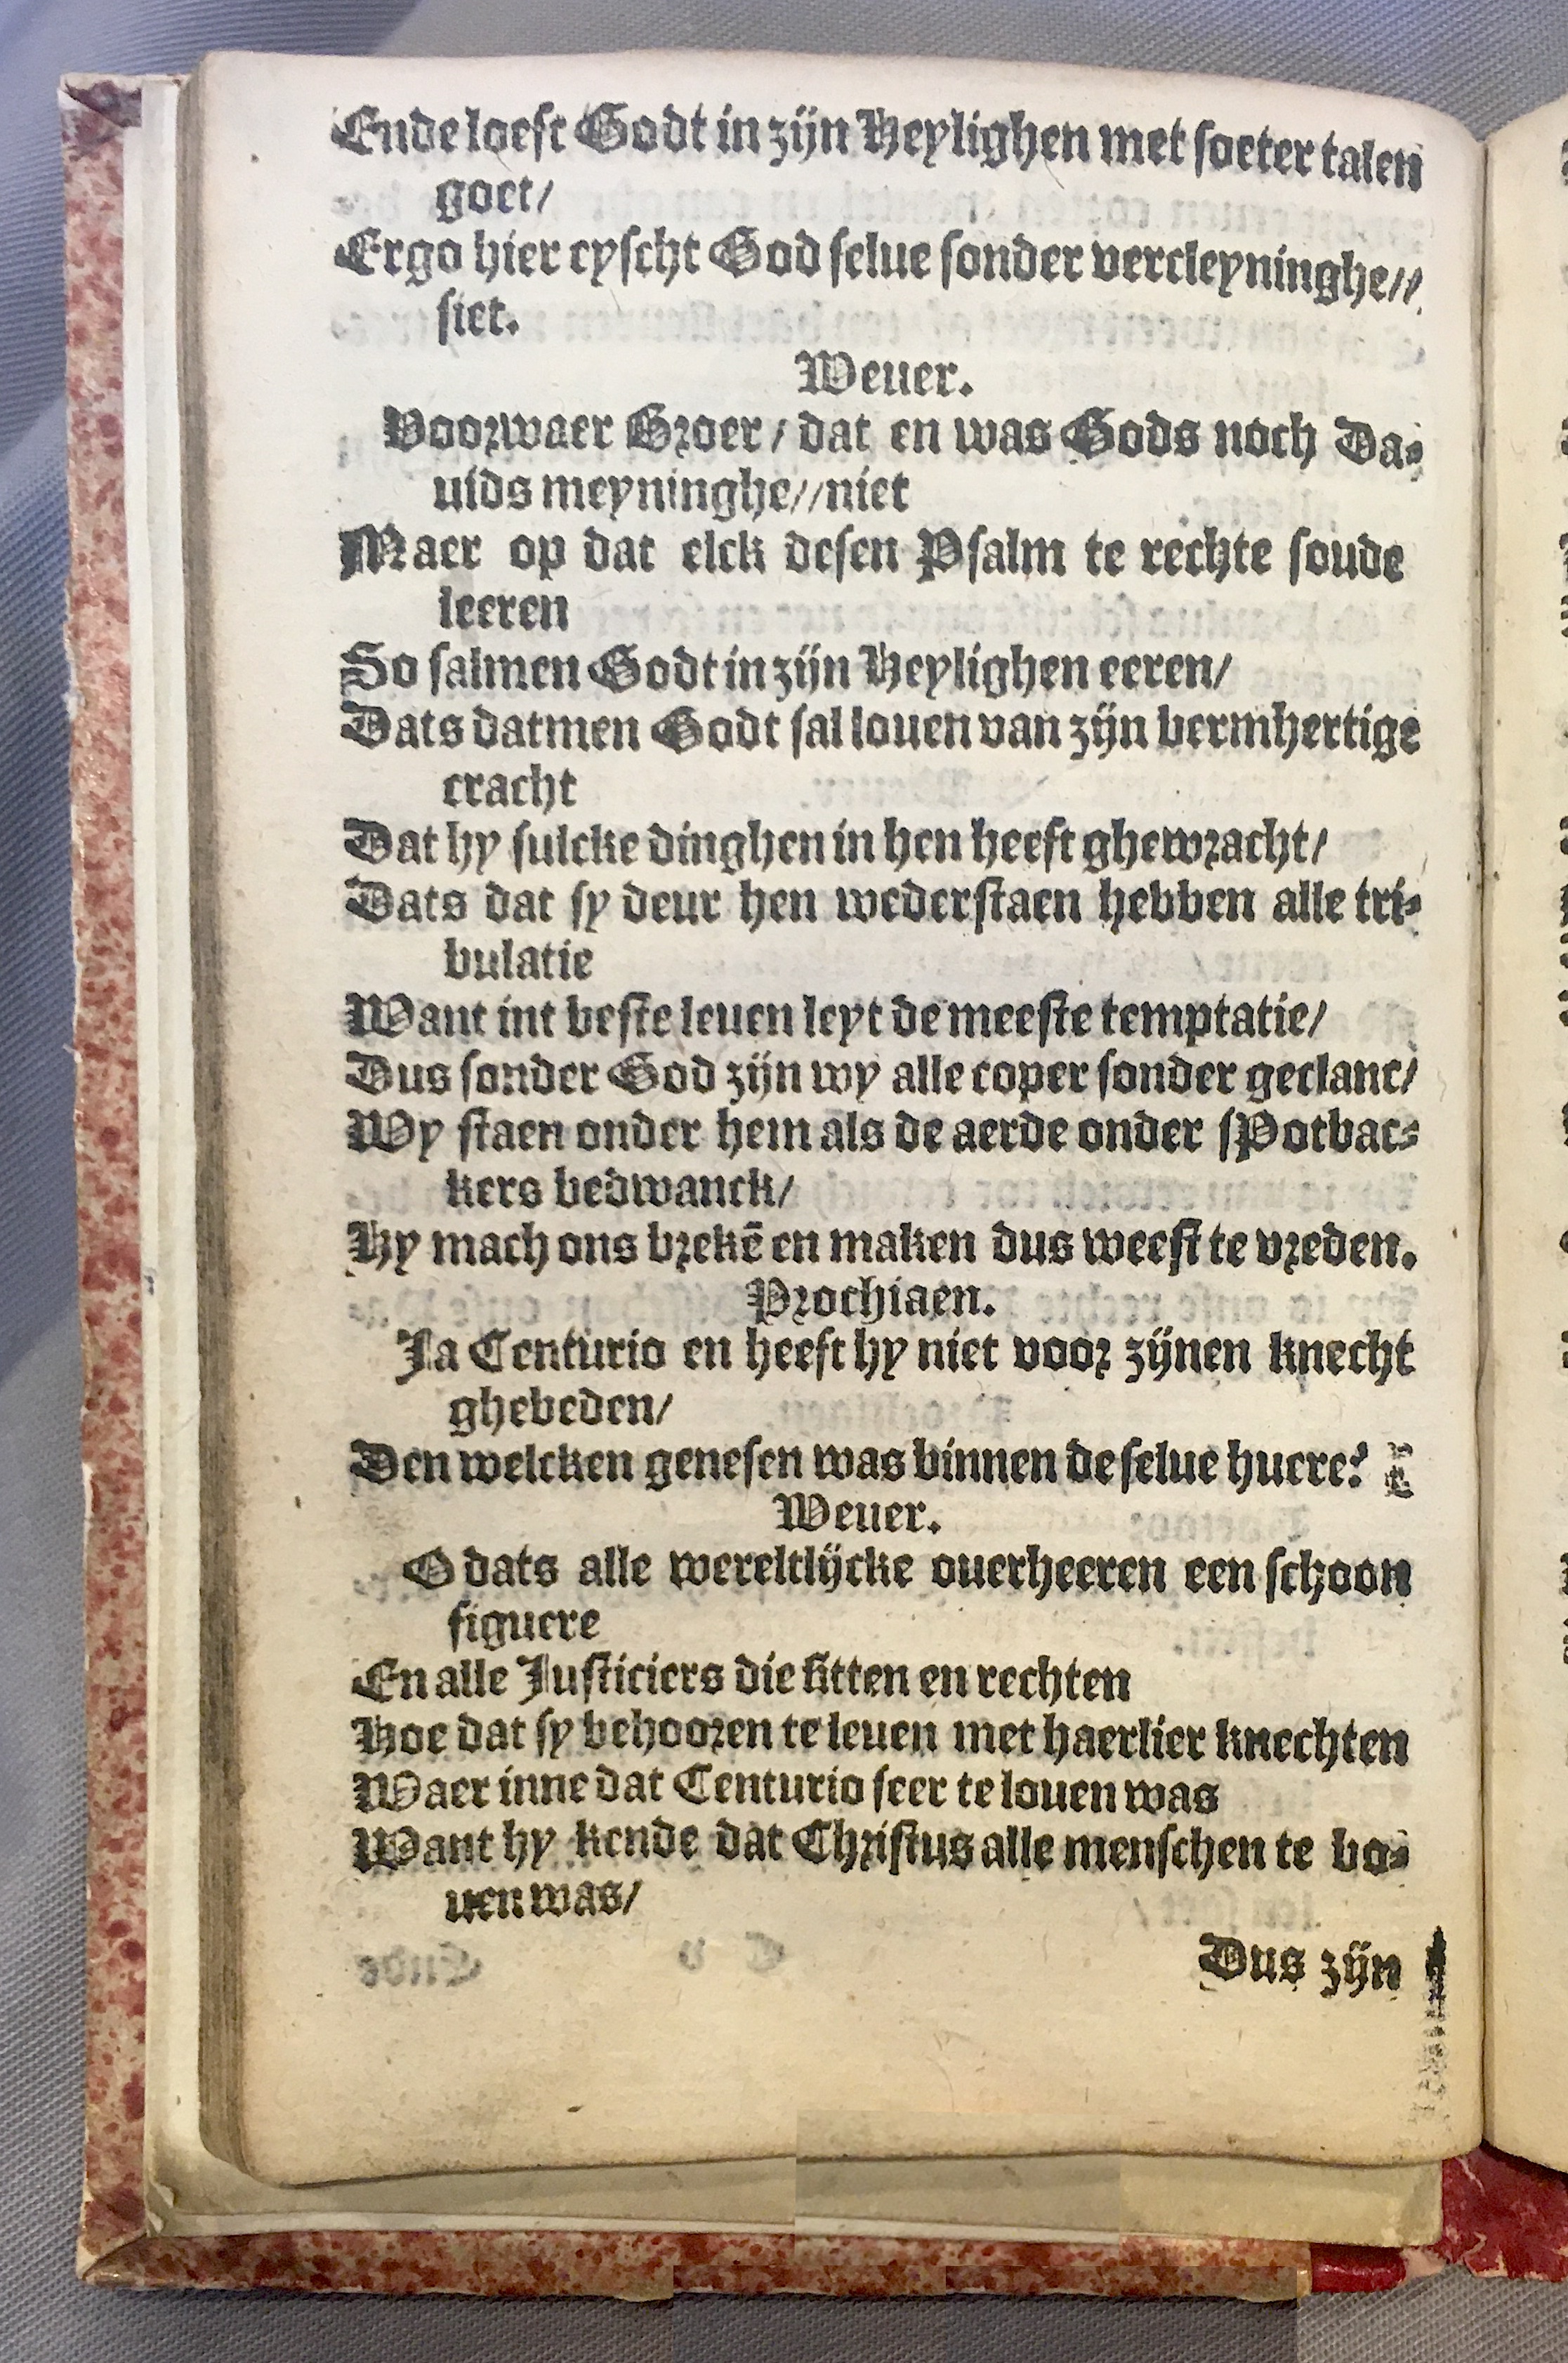 Ende loeft Godt in zijn Heylighen met soeter talen
goet/
Ergo hier eyscht God selue sonder vercleyninghe//
siet.
Weuer.
Voorwaer Broer / dat en was Gods noch Da-
uids meyninghe//niet
Maer op dat elck desen Psalm te rechte soude
leeren
So salmen Godt in zijn Heylighen eeren/
Dats datmen Godt sal louen van zijn bermhertige
cracht
Dat hy sulcke dinghen in hen heeft ghewracht/
Dats dat sy deur hen wederstaen hebben alle tri-
bulatie
Want int beste leuen leyt de meeste temptatie/
Dus sonder God zijn wy alle coper sonder geclanc/
Wy staen onder hem als de aerde onder sPotbac-
kers bedwanck/
Hy mach ons brekē en maken dus weest te vreden.
Prochiaen.
Ja Centurio en heeft hy niet voor zijnen knecht
ghebeden/
Den welcken genesen was binnen de selue huere?
Weuer.
O dats alle wereltlijcke ouerheeren een schoon
figuere
En alle Justiciers die sitten en rechten
Hoe dat sy behooren te leuen met haerlier knechten
Waer inne dat Centurio seer te louen was
Want hy kende dat Christus alle menschen te bo-
uen was/
Dus zijn